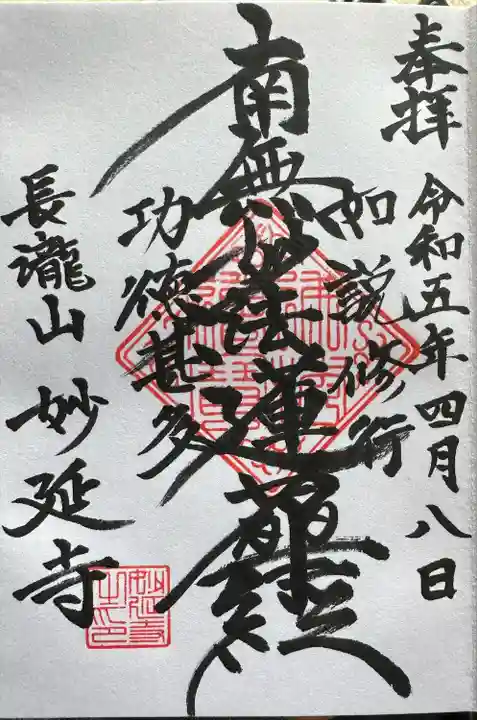 奉拝 令和五年四月八日
如説修行
南無妙法蓮華経
功徳甚多
長瀧山 妙延寺
妙延寺之印